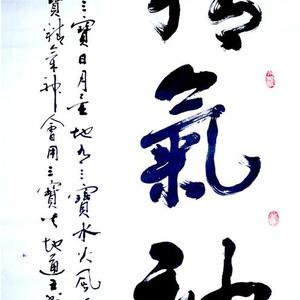 精氣神
三寶日月星地有三寶水火風
寶精氣神會用三寶天地通